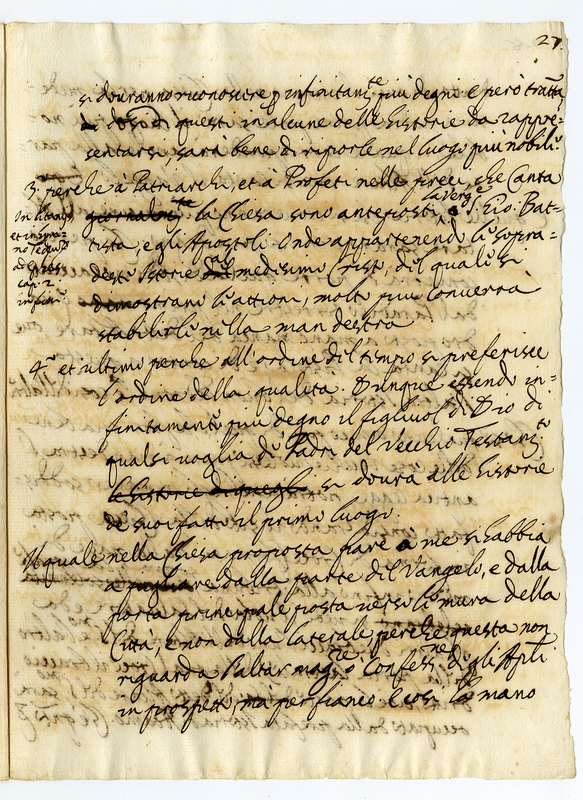 27.
si douranno riconoscere p infinitam.te più degni. e però tratta
di questi in alcune delle historie da rappre=
sentarsi, sarà bene di riporle nel luogo più nobile.
3.° perche à Patriarchi, et à Profeti nelle preci, che Canta
giornalm.te la Chiesa sono anteposti, la Verg.e S. Gio: Bat-
tista, e gli Apostoli. Onde appartenendo le sopra-
dette Istorie al medesimo Cristo, di il quale si
dimostrano le attioni, molto più converrà
stabilirle nella man destra
4.° et ultimo perche all'ordine del tempo si preferisce
l'ordine della qualità. Dunque essendo in=
finitamente più degno il figliuol di Dio di
qualsivoglia de Padri del Vecchio Testam.to
le historie di quegli, si dourà alle historie
de' suoi fatti il primo luogo.
Il quale nella Chiesa proposta pare à me si habbia
a pigliare dalla parte del Vangelo, e dalla
porta principale posta verso le mura della
Città, e non dalla laterale perche questa non
riguarda l'altar magg.re o Confess.ne degli Ap.li
in prospetto, mà per fianco. E così la mano